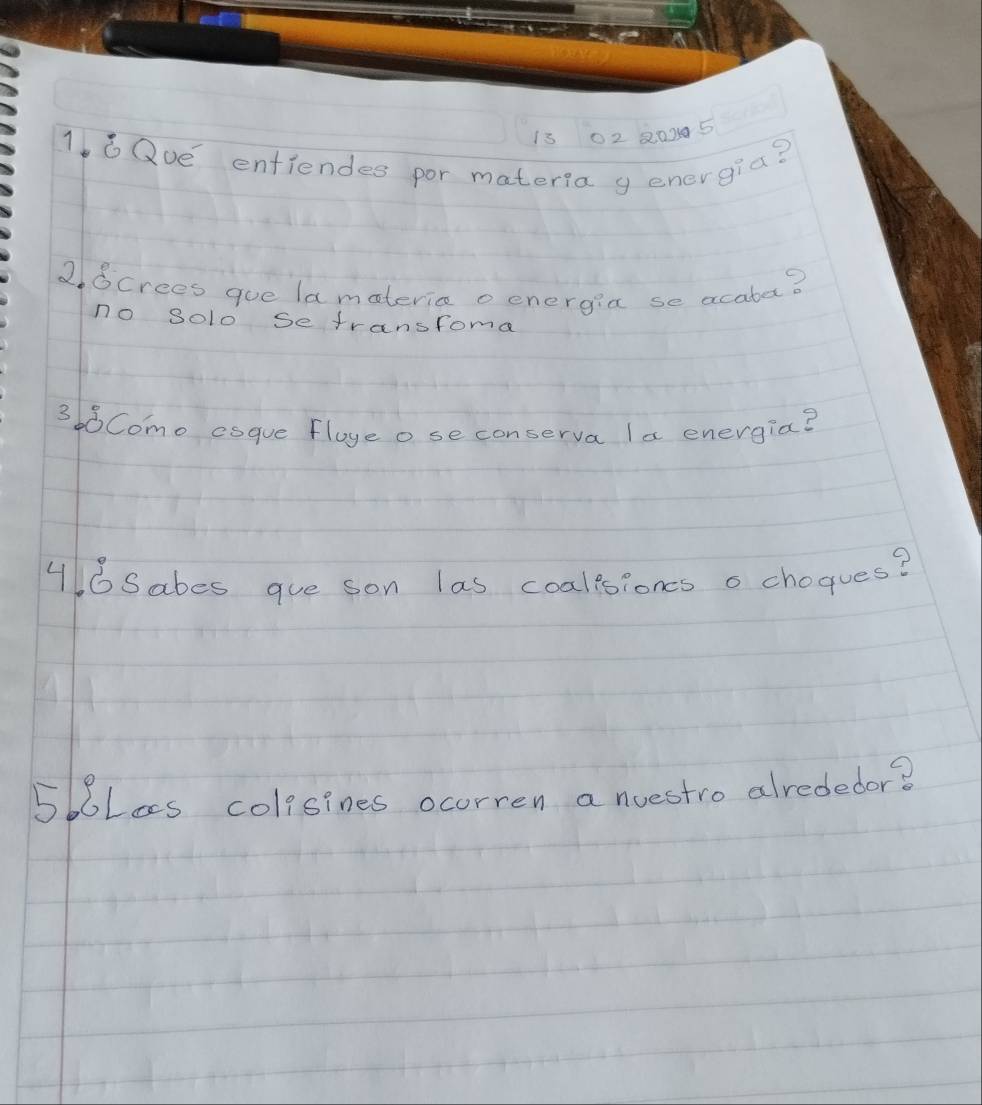 13 02 2025
1. ¿Qué entiendes por materia y energia?
2. ¿crees que la materia o energia se acaba?
no solo se transfoma
3. ¿Cómo esque Fluye o se conserva la energia?
4. ¿Sabes que son las coalisiones o choques?
5. ¿Las colisines ocurren a nuestro alrededor?